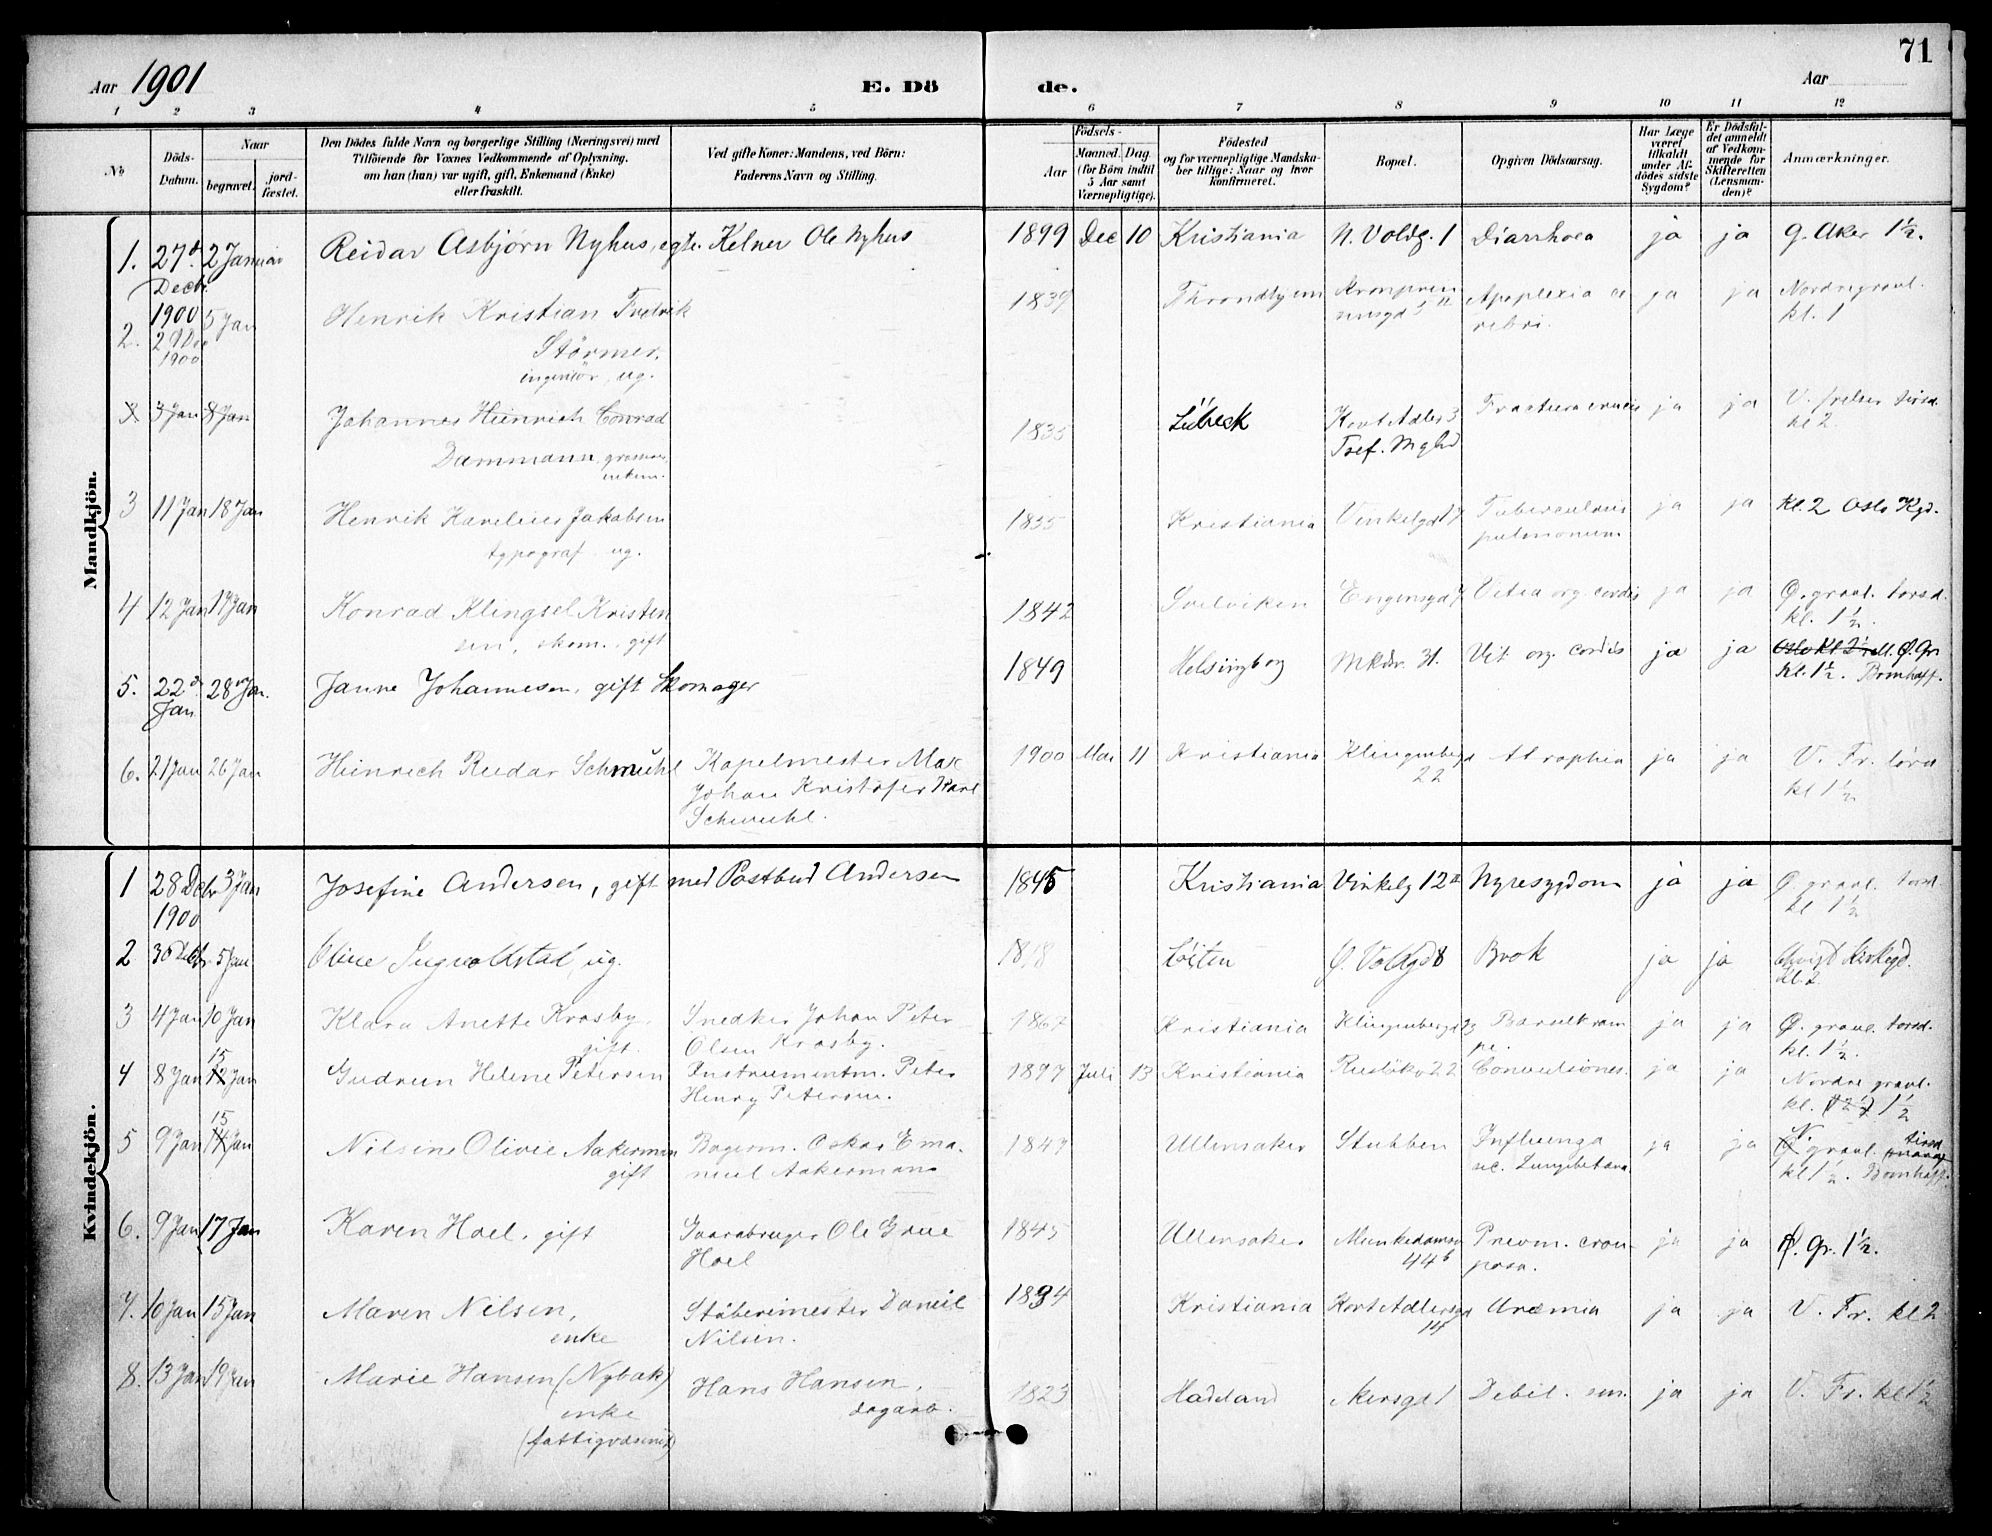 71
Aar 1901
E. Dö
de.
Aar
1 2 3 4 5 6 7 8 9 10 11 12
No
Döds-
Datum.
Naar
begravet.
jord-
fæstet.
Den Dödes fulde Navn og borgerlige Stilling (Næringsvei) med
Tilföiende for Voxnes Vedkommende af Oplysning.
om han (hun) var ugift, gift, Enkemand (Enke)
eller fraskilt.
Ved gifte Koner: Mandens, ved Börn:
Faderens Navn og Stilling.
Födsels-
Aar
Maaned. Dag.
(for Börn indtil
5 Aar samt
Værnepligtige).
Födested
og for værnepligtige Mandska-
ber tillige: Naar og hvor
konfirmeret.
Bopæl.
Opgiven Dödsaarsag.
Har Læge
været
tilkaldt
under Af-
dödes sidste
Sygdom?
Er Dödsfal-
det anmeldt
af Vedkom-
mende for
Skifteretten
(Lensman-
den)?
Anmærkninger.
Mandkjön.
1. 27d 2 Januar Reidar Asbjørn Nyhus, egte. Kelner Ole Nyhus 1899 Dec 10 Kristiania N. Voldg. 1 Diarrhoea ja ja g. Aker 1½.
Decbr.
1900
2. 5 Jan Henrik Kristian Fredrik 1839 Throndhjem Apoplexia ce ja ja Nordregravl.
1900 rebri. kl. 1
Störmer,
ingeniör, ug.
3 3 Jan 8 Jan Johannes Heinrich Conrad 1835 Lübeck Kort Adlers 3 Fractura cruris ja ja V. frelser tirsd.
Dammann, kl 2.
3 11 Jan 18 Jan Henrik Karelius Jakobsen 1835 Kristiania Vinkelgd 17 Tuberculosis ja ja Kl. 2 Oslo Kgd.
typograf. ug. pulmonum
4 12 Jan 17 Jan Konrad Klingsel Kristen 1842 Svelviken Engensgd 7 Vitea org. cordis ja ja Ø. gravl. torsd.
sen, skom. gift kl. 1½.
5. 22d 28 Jan. Janne Johannesen, gift Skomager 1849 Helsingborg Mkdv. 31. Vit org. cordis ja ja Ø. Gr.
Jan kl. 1½. Bomhoff.
6. 21 Jan 26 Jan Heinrich Reidar Schmuhl Kapelmester Max 1900 Mai 11 Kristiania Klingenbergd Atrophia ja ja V. Fr. lörd
Johan Kristofer Karl 22 kl 1½
Schmuhl.
Kvindekjön.
1 28 Decbr 3 Jan Josefine Andersen, gift med Postbud Andersen 1845 Kristiania Vinkelg 12 Nyresygdom ja ja Ø gravl. torsd.
1900 kl 1½
2 30 Decbr 5 Jan Oline Ingvoldstad, ug. 1818 Löiten Ø. Voldgd 8 Brok ja ja
kl. 2
3 4 Jan 10 Jan Klara Anette Krosby, Snedker Johan Peter 1867 Kristiania Klingenbergd 23 ja ja Ø. gravl. torsd.
gift. Olsen Krosby. kl. 1½.
4 8 Jan 15 12 Jan Gudrun Helene Petersen Instrumentm. Peter 1897 Juli 13 Kristiania Ruslökv 22 Convulsiones. ja ja Nordre gravl.
Henry Petersen. kl. (2½) 1½
5 9 Jan 15 14 Jan Nilsine Olivie Aakerman Bagerm. Oskar Ema- 1847 Ullensaker Stubben Influenza ja ja N. Ø gravl. tirsd
gift nuel Aakerman sec. Lungebetænd. kl 1½. Bomhoff.
6. 9 Jan 17 Jan Karen Hoel, gift Gaardbruger Ole Grue 1845 Ullensaker Munkedamsv Pneum. crou- ja ja Ø. Gr. 1½.
Hoel 44b posa.
7. 10 Jan 15 Jan Maren Nilsen, Støberimester Daniel 1834 Kristiania Kort Adlersgd Uræmia ja ja V. Fr. kl 2
enke Nilsen. 14
8. 13 Jan 19 Jan Marie Hansen (Nybak) Hans Hansen, 1823 Hadeland Akersgd 1 Debil. sen. ja ja V. Fr. kl 1½
enke dagarb.
(fattigvæsenet)